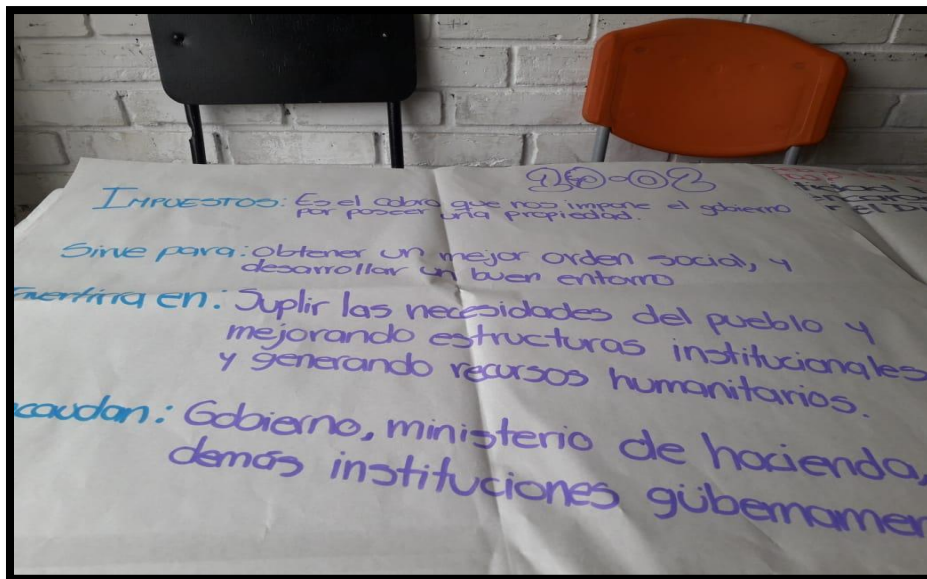 10-02
IMPUESTOS: Es el cobro que nos impone el gobierno
por poseer una propiedad.
Sirve para: obtener un mejor orden social, y
desarrollar un buen entorno
en: Suplir las necesidades del pueblo y
mejorando estructuras institucionales
y generando recursos humanitarios.
caudan: Gobierno, ministerio de hacienda,
demás instituciones gübernamen